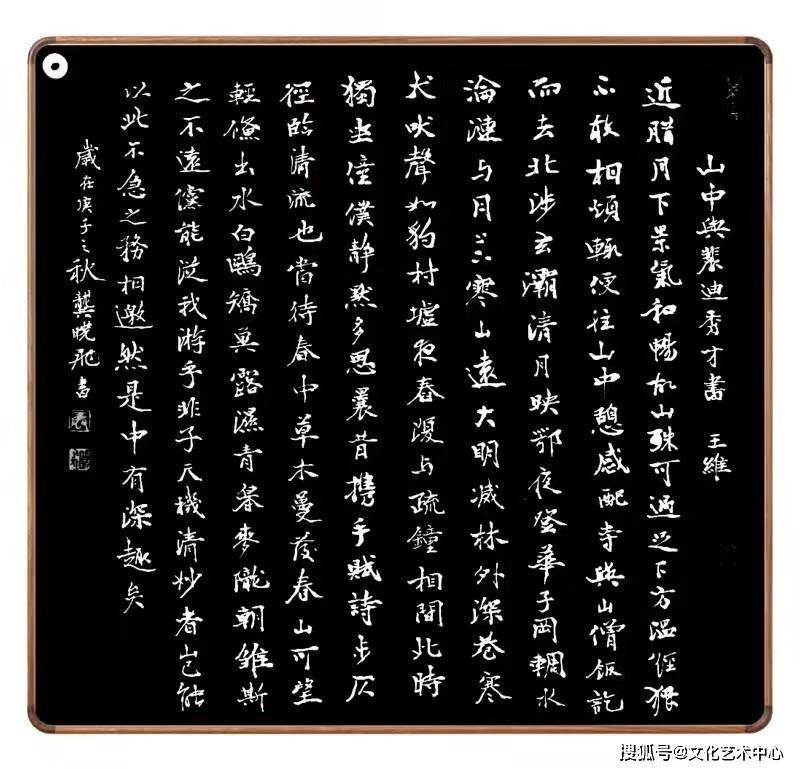 山中與裴迪秀才書 王維
近腊月下景氣和暢故山殊可過足下方溫經猥
不敢相煩輒便往山中憩感配寺與山僧飯訖
而去北涉玄灞清月映郭夜登華子岡輞水
淪漣与月上下寒山遠火明滅林外深巷寒
犬吠聲如豹村墟夜舂復与疏鐘相間此時
獨坐僮僕靜默多思曩昔攜手賦詩步仄
徑臨清流也當待春中草木蔓發春山可望
輕鯈出水白鷗矯翼露濕青皋麥隴朝雊斯
之不遠儻能從我游乎非子天機清妙者豈能
以此不急之務相邀然是中有深趣矣
歲在庚子之秋龔晓飛書
搜狐号@文化艺术中心